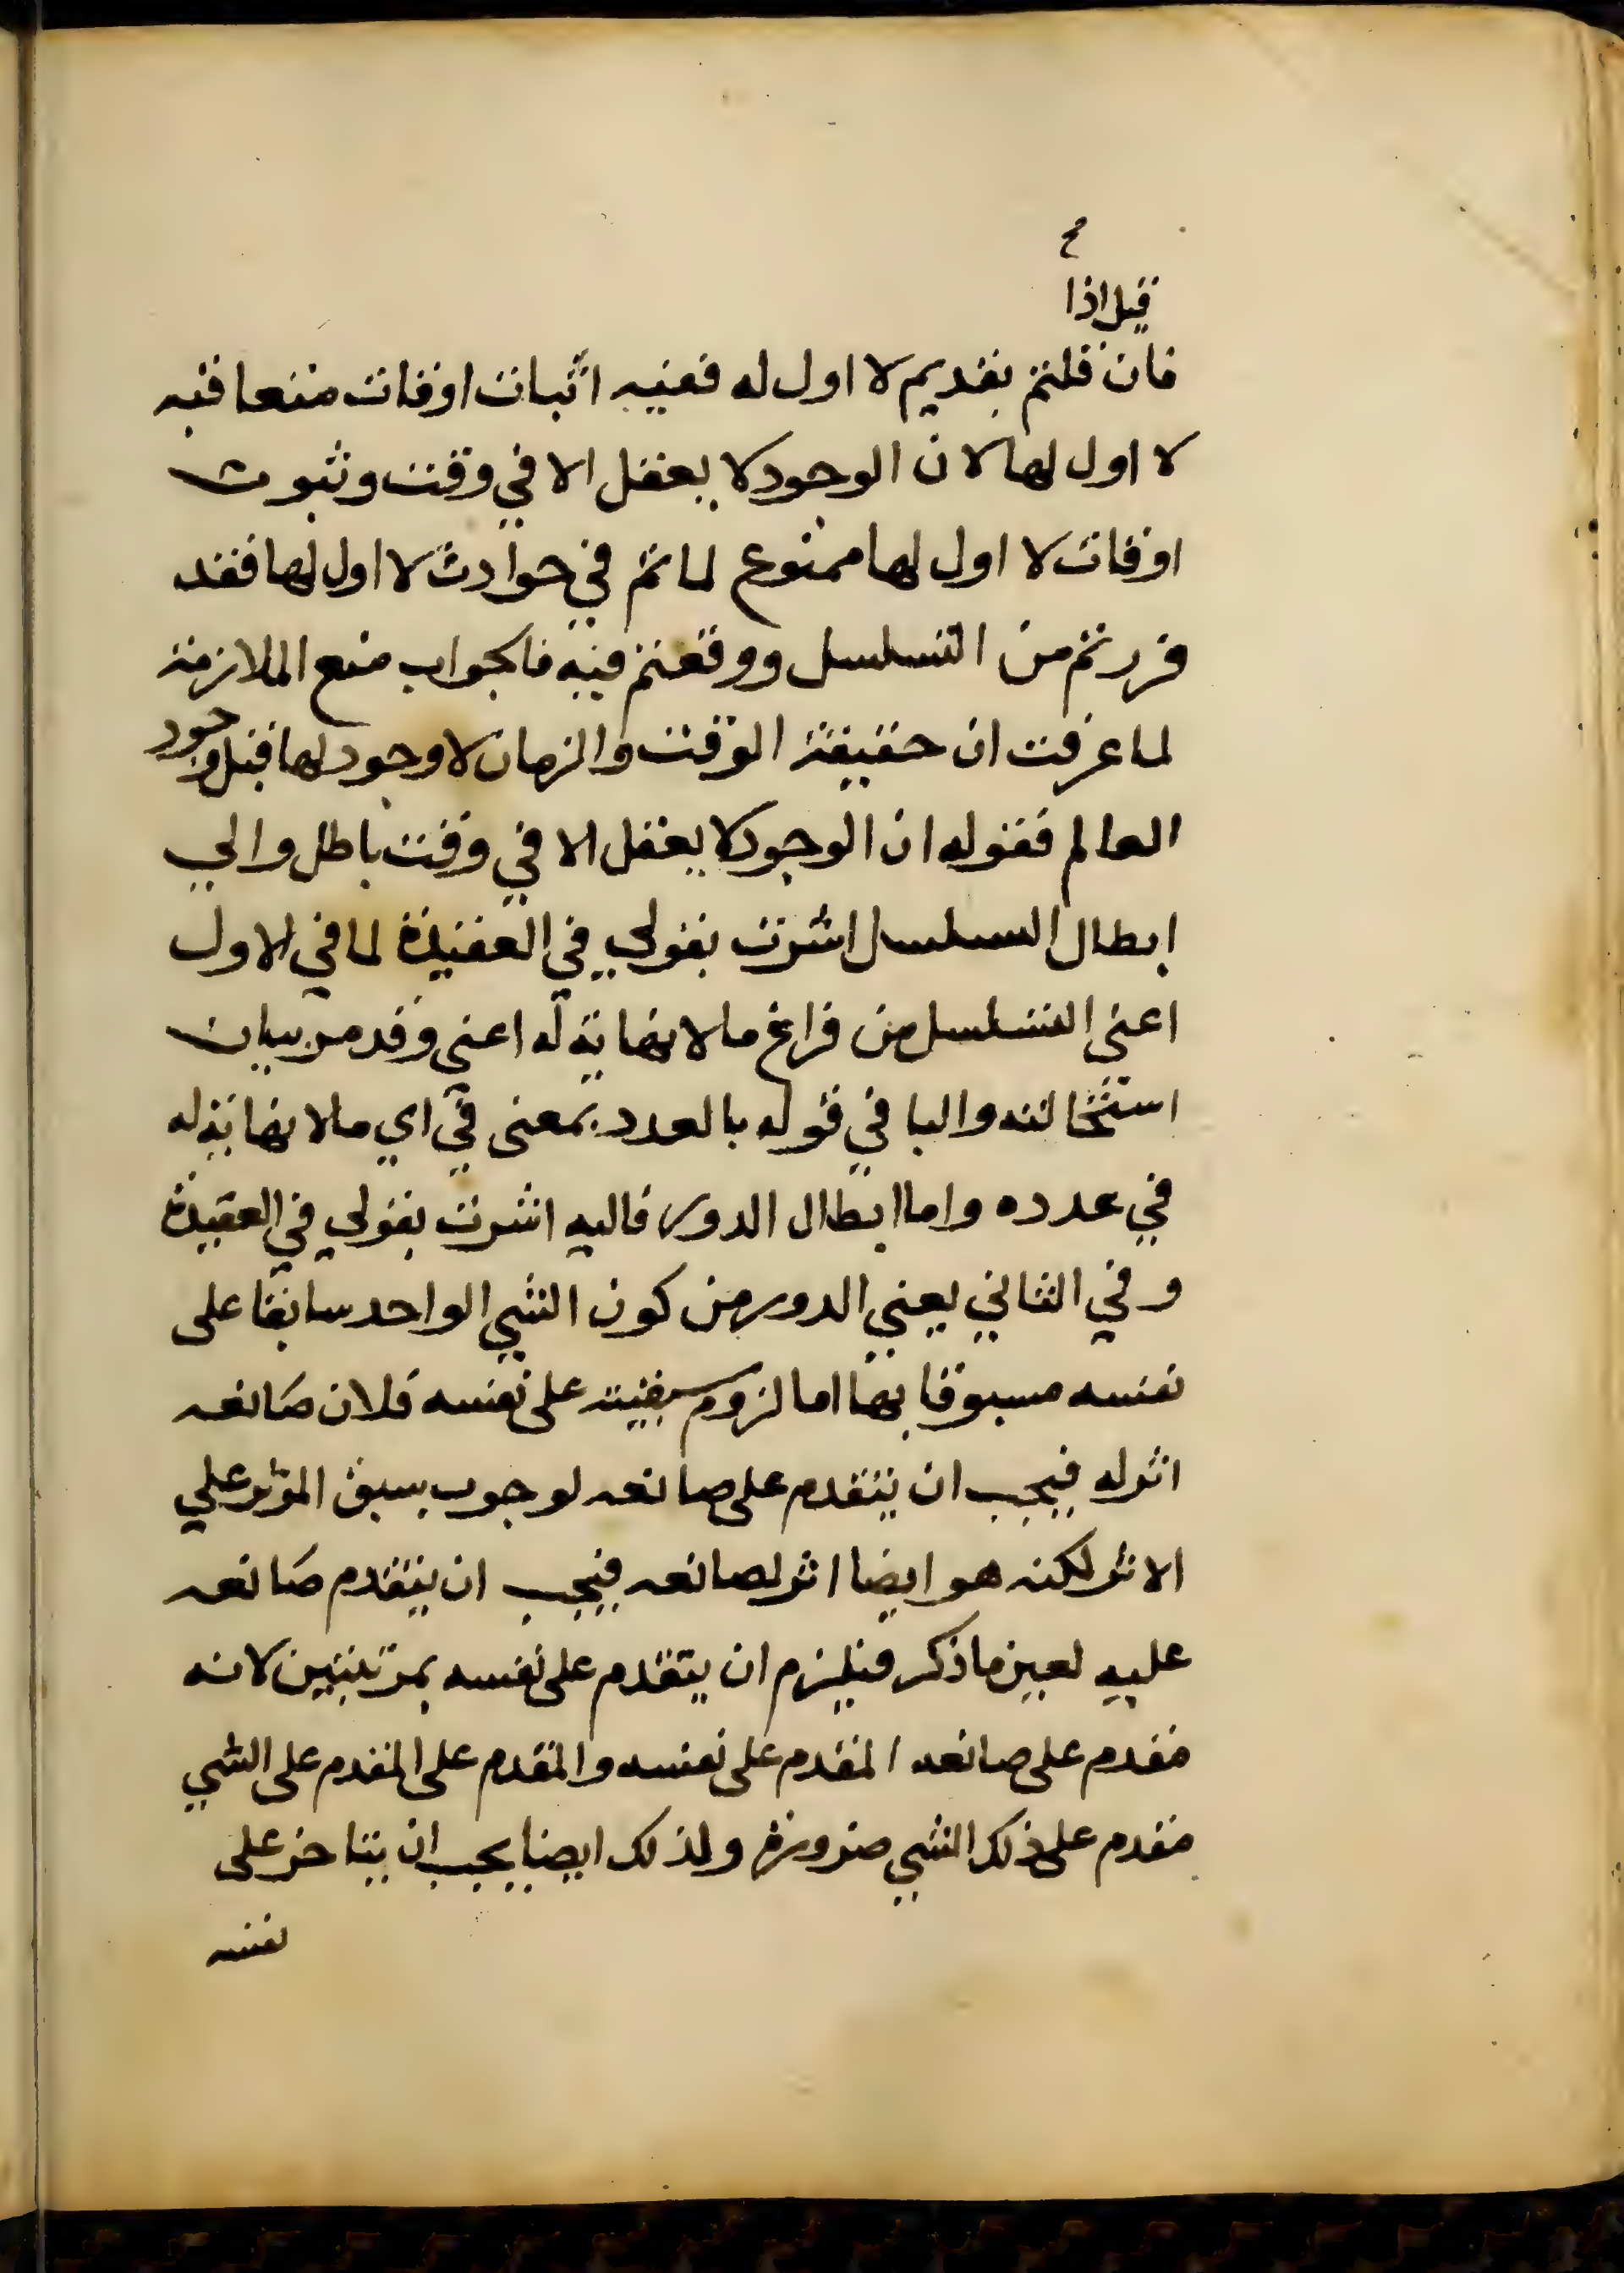 قيل اذا
فان قلتم بقديم لا اول له ففيه اثبات اوقات متعاقبه
لا اول لها لان الوجود لا يعقل الا في وقت وثبوت
اوقات لا اول لها ممنوع لما تم في حوادث لا اول لها فقد
فررتم من التسلسل ووقعتم فيه فالجواب منع الملازمة
لما عرفت ان حقيقة الوقت والزمان لا وجود لها قبل وجود
العالم فقوله ان الوجود لا يعقل الا في وقت باطل والي
ابطال التسلسل اشرت بقولي في العقيدة لما في الاول
اعني التسلسل من فراغ ما لا نهاية له اعني وقد مر بيان
استحالته والبا في قوله بالعدد بمعنى في اي ما لا نهاية له
في عدده واما ابطال الدور فاليه اشرت بقولي في العقيدة
وفي الثاني يعني الدور من كون الشي الواحد سابقا على
نفسه مسبوقا بها اما لزوم سبقيته على نفسه فلان صانعه
اثر له فيجب ان يتقدم على صانعه لوجوب سبق المؤثر علي
الاثر لكنه هو ايضا اثر لصانعه فيجب ان يتقدم صانعه
عليه لعين ما ذكر فيلزم ان يتقدم على نفسه بمرتبتين لانه
مقدم على صانعه المقدم على نفسه والمقدم على المقدم على الشي
مقدم على ذلك الشي ضرورة ولذلك ايضا يجب ان يتاخر على
نفسه